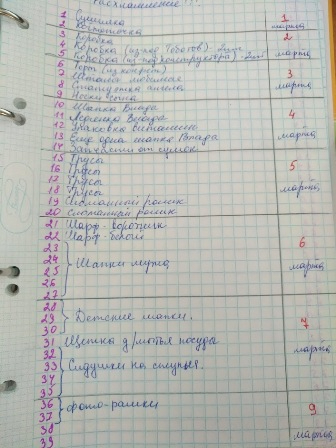 Расхламление!!!
1 Сушилка
2
3 Коробка
4 Коробка (из-под ) - 2шт
5 Коробка (из-под конструктора) - 2шт
6 (из конфет)
7 Штаны любимые
8 Статуэтка ангела
9 Носки сына
10 Шапка Влада
11 Влада
12 Упаковка витаминов
13 Ещё одна шапка Влада
14 Запчасти от сумок
15 Трусы
16 Трусы
17 Трусы
18 Трусы
19 Сломанный ролик
20 Сломанный ролик
21 Шарф-воротник
22 Шарф-белый
23
24 Шапки мужа
25
26
27
28
29 Детские шапки.
30
31 Щетка д/мытья посуда
32
33 Сидушки на стулья.
34
35
36
37 фото-рамки
38
39
1
марта
2
марта
3
марта
4
марта
5
марта
6
марта
7
марта
9
марта